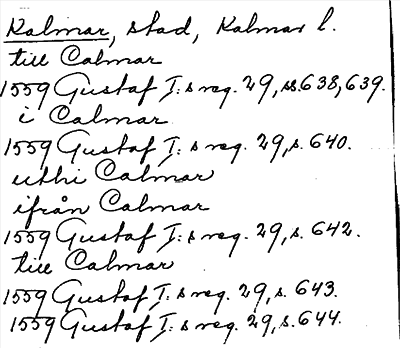 Kalmar, stad, Kalmar l.
till Calmar
1559 Gustaf I:s reg. 29, ss. 638, 639.
i Calmar
1559 Gustaf I:s reg. 29, s. 640.
uthi Calmar
ifrån Calmar
1559 Gustaf I:s reg. 29, s. 642.
till Calmar
1559 Gustaf I:s reg. 29, s. 643.
1559 Gustaf I:s reg. 29, s. 644.